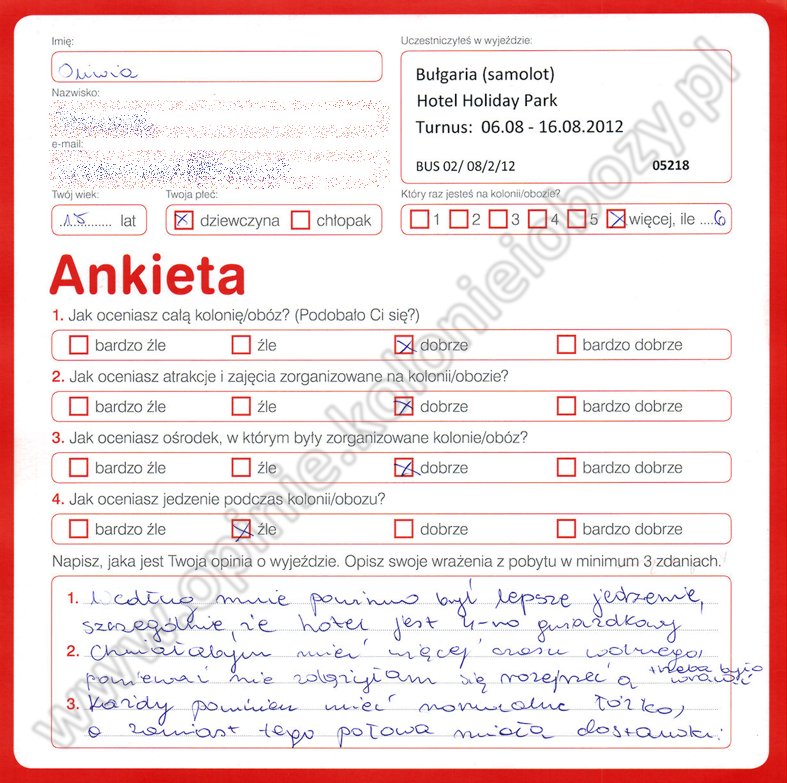 Imię:
Oliwia
Uczestniczyłeś w wyjeździe:
Bułgaria (samolot)
Hotel Holiday Park
Turnus: 06.08 - 16.08.2012
BUS 02/ 08/2/12 05218
Nazwisko:
e-mail:
Twój wiek:
15 lat
Twoja płeć:
dziewczyna chłopak
Który raz jesteś na kolonii/obozie?
1 2 3 4 5 więcej, ile ....6
Ankieta
1. Jak oceniasz całą kolonię/obóz? (Podobało Ci się?)
bardzo źle źle dobrze bardzo dobrze
2. Jak oceniasz atrakcje i zajęcia zorganizowane na kolonii/obozie?
bardzo źle źle dobrze bardzo dobrze
3. Jak oceniasz ośrodek, w którym były zorganizowane kolonie/obóz?
bardzo źle źle dobrze bardzo dobrze
4. Jak oceniasz jedzenie podczas kolonii/obozu?
bardzo źle źle dobrze bardzo dobrze
Napisz, jaka jest Twoja opinia o wyjeździe. Opisz swoje wrażenia z pobytu w minimum 3 zdaniach.
1. Według mnie powinno być lepsze jedzenie,
szczególnie, że hotel jest 4-ro gwiazdkowy
2. Chciałabym mieć więcej czasu wolnego,
ponieważ nie zdążyłam się rozejrzeć a trzeba było wracać
3. Każdy powinien mieć normalne łóżko,
a zamiast tego połowa miała dostawki.
www.opinie.kolonieiobozy.pl